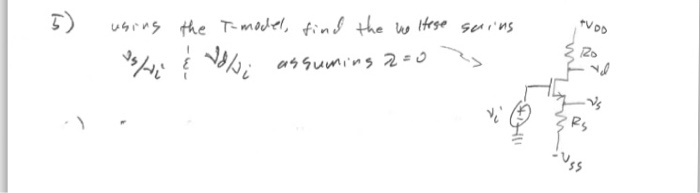 5) using the T-model, find the voltage gains
vs/vi & vd/vi assuming λ=0
+VDD
RD
vd
vs
vi
RS
-VSS